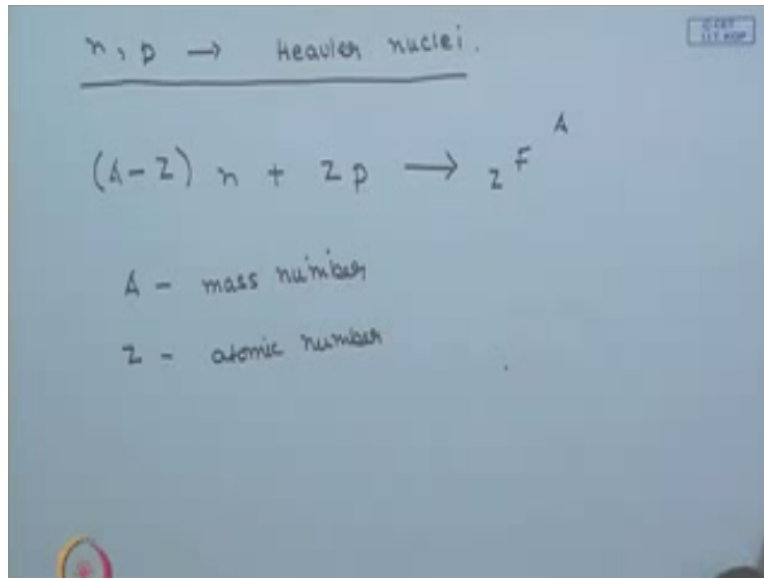 n, p → Heavier nuclei.
(A-Z) n + Z p → Z F A
A - mass number
Z - atomic number